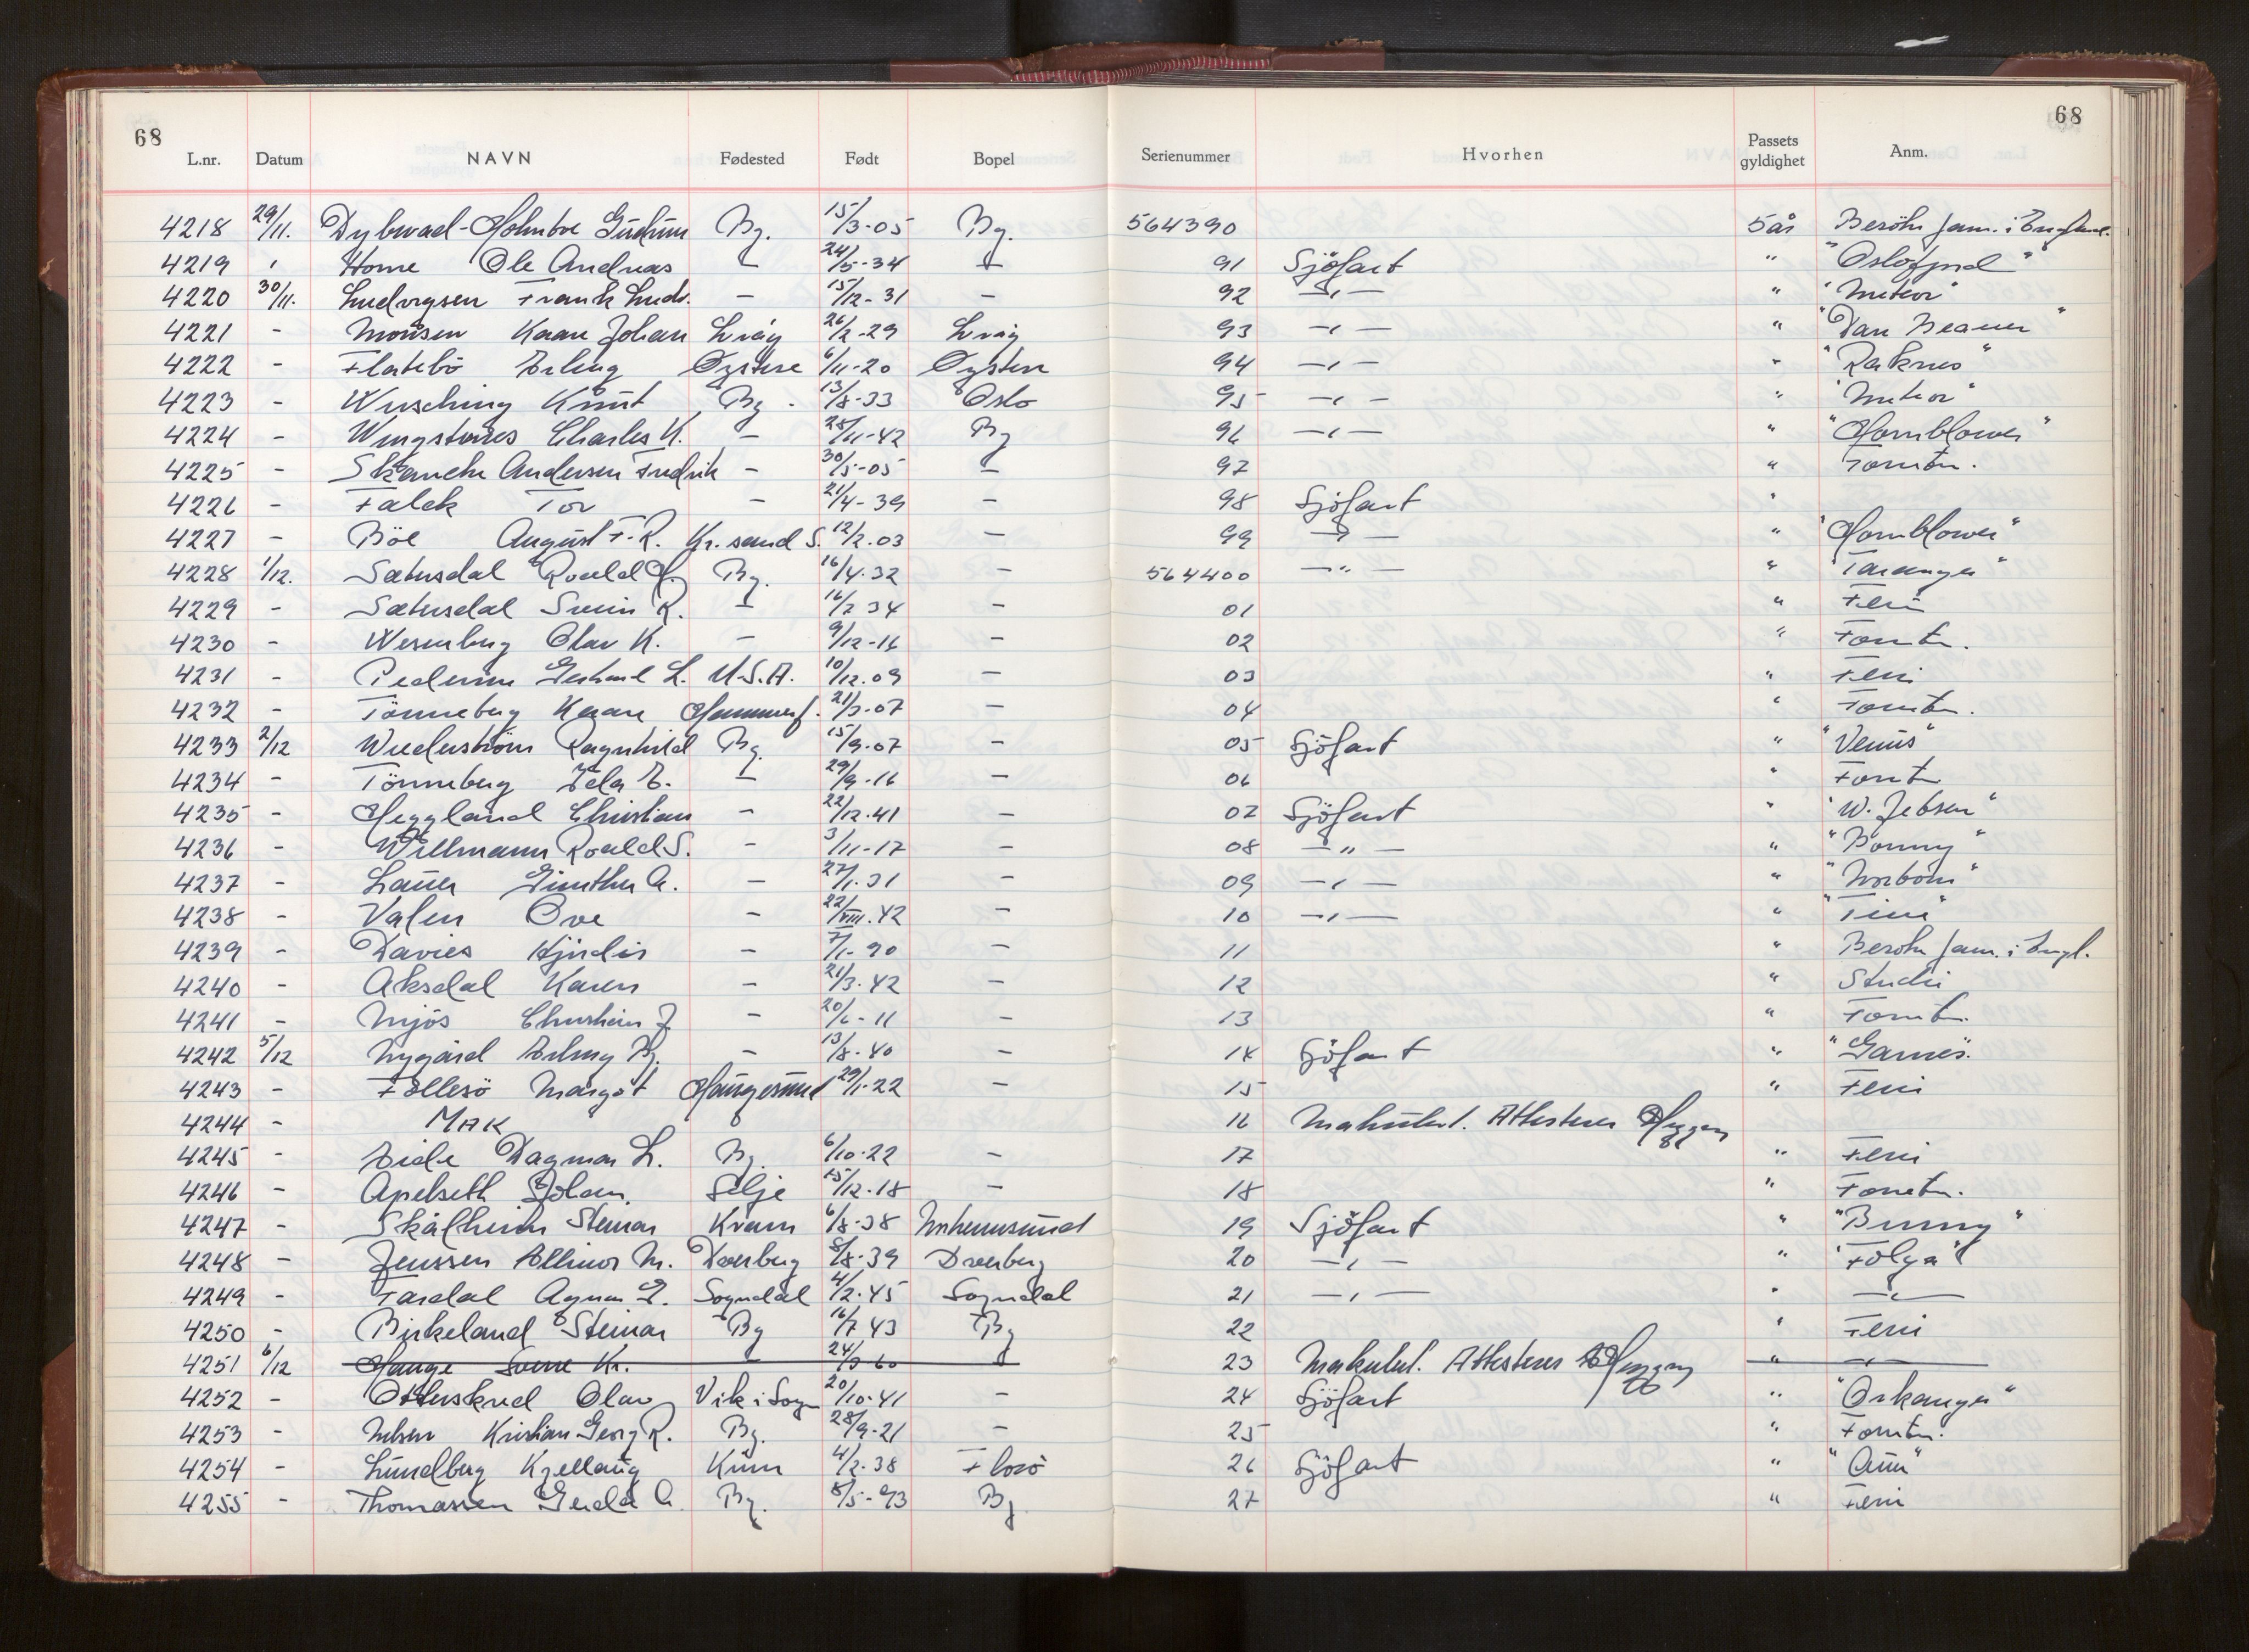 68
68
L.nr. Datum NAVN Fødested Født Bopel Serienummer Hvorhen Passets gyldighet Anm.
4218 29/11. Dybwad-Holmboe Gudrun Bg. 15/3-05 Bg. 564390 5 år Besöke fam. i England.
4219 Horne Ole Andreas - 24/5-34 - 91 Sjöfart " "Oslofjord"
4220 30/11. Ludvigsen Frank Ludv. - 15/12-31 - 92 -"- " "Meteor"
4221 - Monsen Kaare Johan 26/2-29 93 -"- " "Dan Beamer"
4222 - Flatebö Erling Øystese 6/11-20 Øystese 94 -"- " "Raknes"
4223 - Wusching Knut Bg. 13/8-33 Oslo 95 -"- " "Meteor"
4224 - Charles K. - 28/11-42 Bg 96 -"- " "Hornblower"
4225 - Skanche Andersen Fredrik - 30/5-05 - 97 " Forretn.
4226 - Falck Tor - 21/4-39 - 98 Sjöfart "
4227 - Böe August F. R. Kr.sand S. 12/2.03 - 99 -"- " "Hornblower"
4228 1/12. Sætersdal Roald H. Bg. 16/4.32 564400 -"- " "Taranger"
4229 - Sætersdal Svein R. - 16/2 34 - 01 " Ferie
4230 - Wesenberg Olav K. - 9/12-16 - 02 " Forretn.
4231 - Pedersen Gerhard L. U.S.A. 10/12.09 - 03 " Ferie
4232 - Tönneberg Kaare Hammerf. 21/3.07 - 04 " Forretn.
4233 2/12 Wiederström Ragnhild Bg. 15/9.07 - 05 Sjöfart " "Venus"
4234 - Tönneberg E. - 29/9-16 - 06 " Forretn
4235 - Heggland Christian - 22/12.41 - 07 Sjöfart " "W. Jebsen"
4236 - Willmann Roald S. - 3/11-17 - 08 -"- " "Bonny"
4237 - Lauer Günther A. - 27/1.31 - 09 -"- " "Norbom"
4238 - Valen Ove - 22/VIII.42 - 10 -"- "
4239 - Davies Hjördis - 7/1-90 - 11 " Besöke fam. i Engl.
4240 - Aksdal Karen - 21/3.42 - 12 " Studie
4241 - Mjös Christian J. - 20/6-11 - 13 " Forretn.
4242 5/12 Nygård Erling B. - 13/8.40 - 14 Sjöfart " "Garnes".
4243 - Follesö Margot Haugesund 29/1.22 - 15 " Ferie
4244 - MAK 16 Makulert. Attesteres
4245 - Eide Dagmar L. Bg. 6/10-22 - 17 " Ferie
4246 - Apelseth Johan. Selje 15/12.18 - 18 " Forretn.
4247 - Skålheim Steinar Kvam 6/8.38 Norheimsund 19 Sjöfart " "Bunny"
4248 - Jenssen Ellinor M. Dverberg 8/8.39 Dverberg 20 -"- " "Folga"
4249 - Tardal Agnar E. Sogndal 4/2.45 Sogndal 21 -"- " -"-
4250 - Birkeland Steinar Bg 16/7 43 Bg 22 " Ferie
4251 6/12 Hauge Sverre Kr. - 24/3 60 - 23 Makulert. Attesteres " -"-
4252 - Otterskred Olav Vik i Sogn 20/10.41 - 24 Sjöfart " "Orkanger"
4253 - Kristian Georg R. Bg. 28/9-21 - 25 " Forretn.
4254 - Lundberg Kjellaug Kinn 4/2.38 Florö 26 Sjöfart "
4255 - Thomassen Gerda A. Bg. 8/5-93 Bg. 27 " Ferie